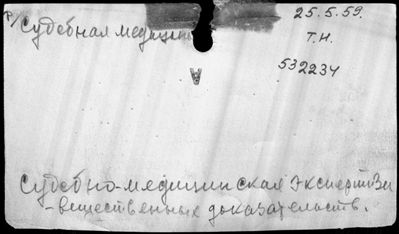 Р/Судебная медицина
25.5.59.
Т.Н.
532234
Судебно-медицинская экспертизы
- вещественных доказательств.